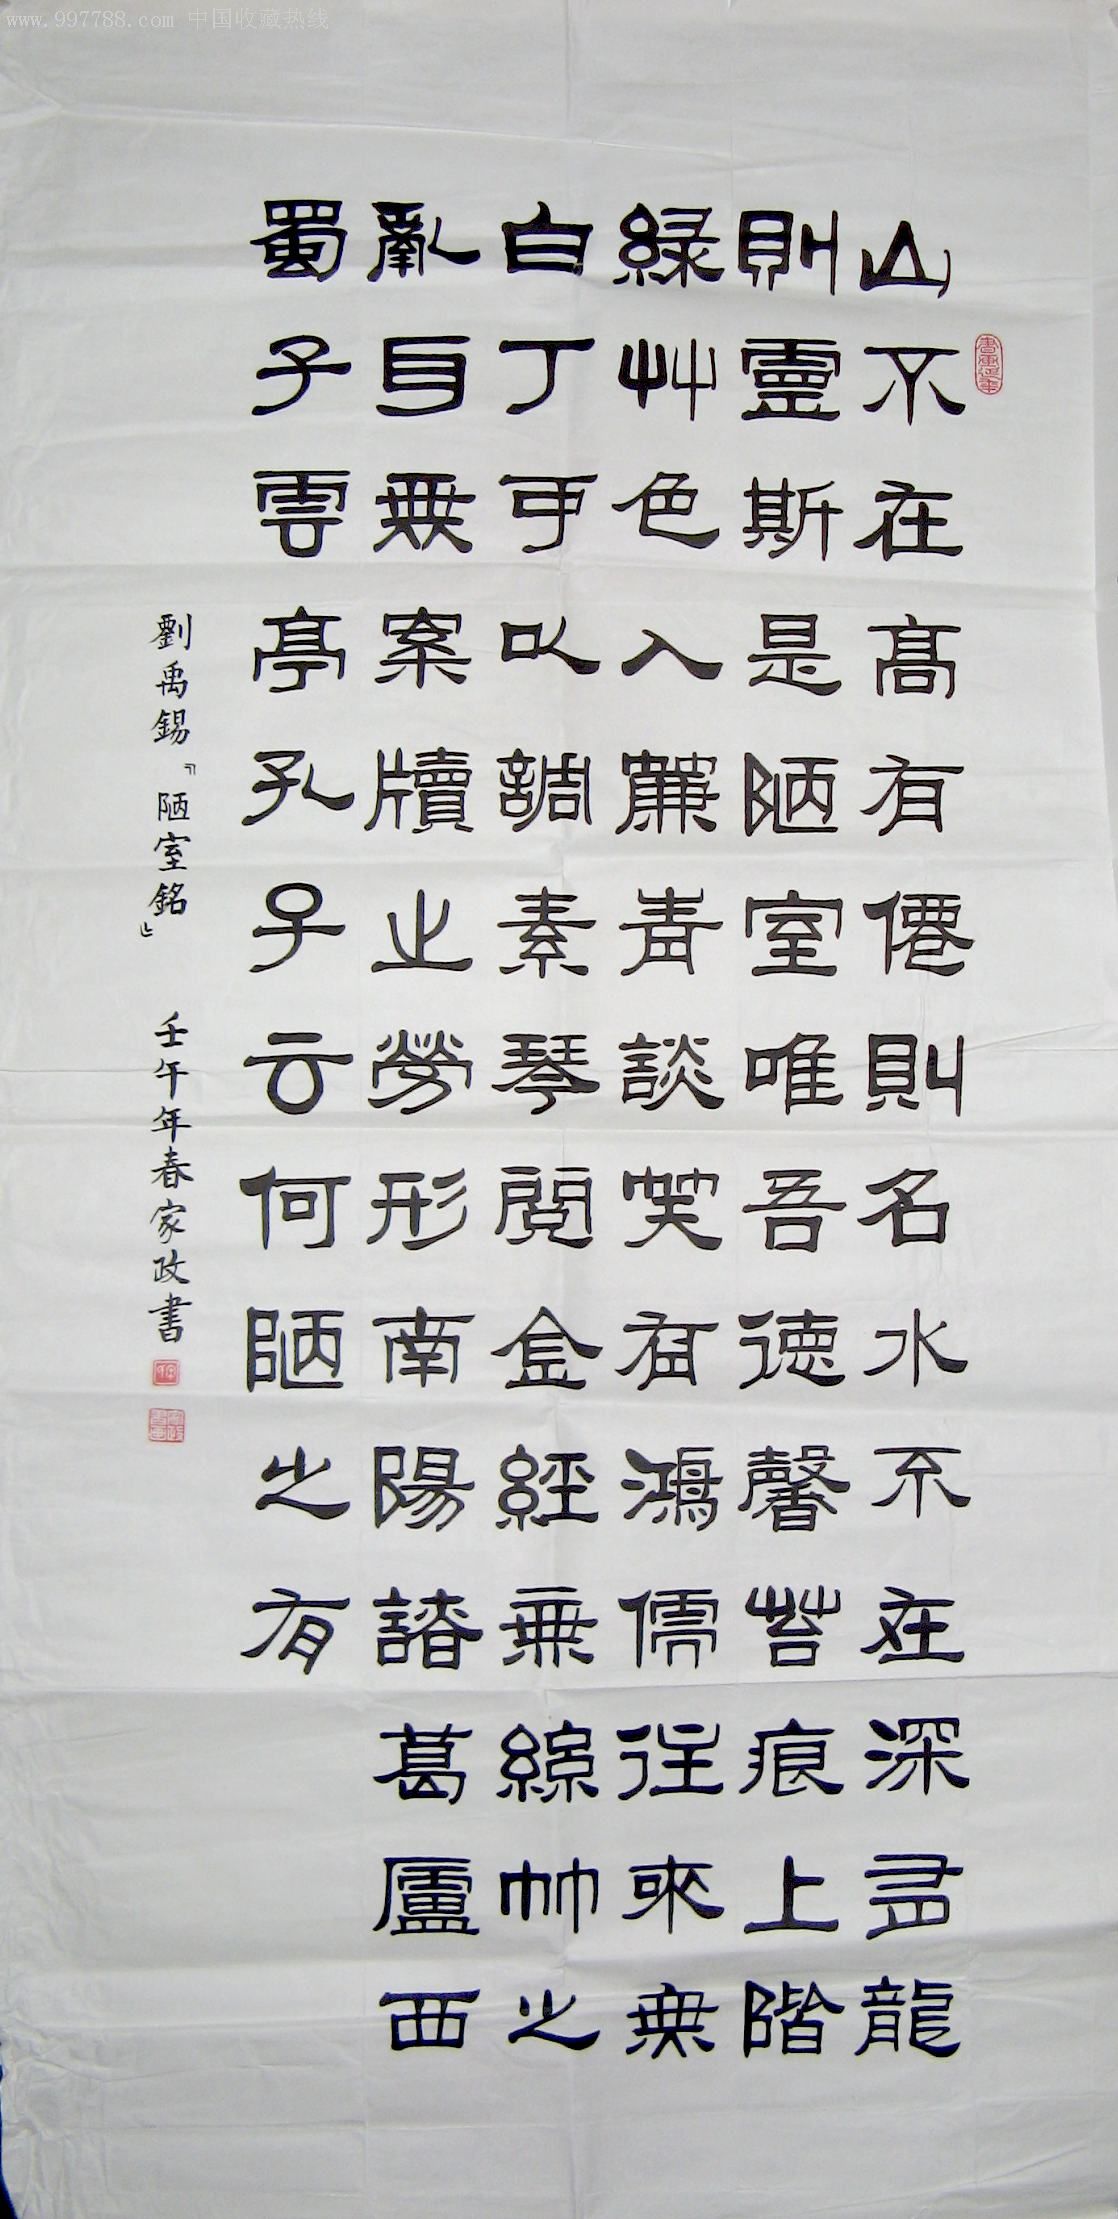 www.997788.com 中国收藏热线
山不在高有僊則名水不在深龍
則靈斯是陋室唯吾德馨苔痕上階
綠艸色入簾青談笑有鴻儒往來無
白丁可以調素琴閱金經無絲竹之
亂耳無案牘之勞形南陽諸葛廬西
蜀子雲亭孔子云何陋之有
劉禹錫『陋室銘』 壬午年春家政書